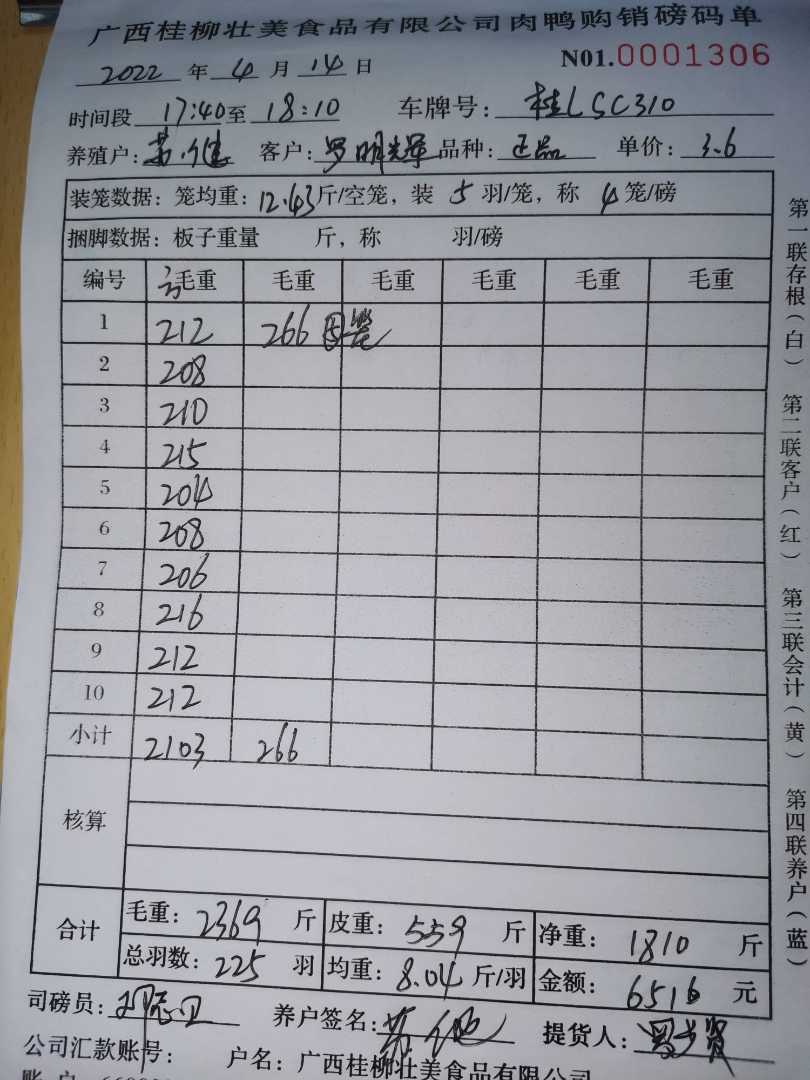 广西桂柳壮美食品有限公司肉鸭购销磅码单
2022 年 4 月 14 日 N01.0001306
时间段 17:40 至 18:10 车牌号: 桂LSC310
养殖户: 苏健 客户: 罗明 品种: 正品 单价: 3.6
装笼数据: 笼均重: 12.43 斤/空笼, 装 5 羽/笼, 称 4 笼/磅
捆脚数据: 板子重量 斤, 称 羽/磅
编号 毛重 毛重 毛重 毛重 毛重 毛重
1 212 266
2 208
3 210
4 215
5 204
6 208
7 206
8 216
9 212
10 212
小计 2103 266
核算
合计 毛重: 2369 斤 皮重: 559 斤 净重: 1810 斤
总羽数: 225 羽 均重: 8.04 斤/羽 金额: 6516 元
司磅员: 养户签名: 苏健 提货人:
公司汇款账号: 户名: 广西桂柳壮美食品有限公司
第一联存根(白) 第二联客户(红) 第三联会计(黄) 第四联养户(蓝)